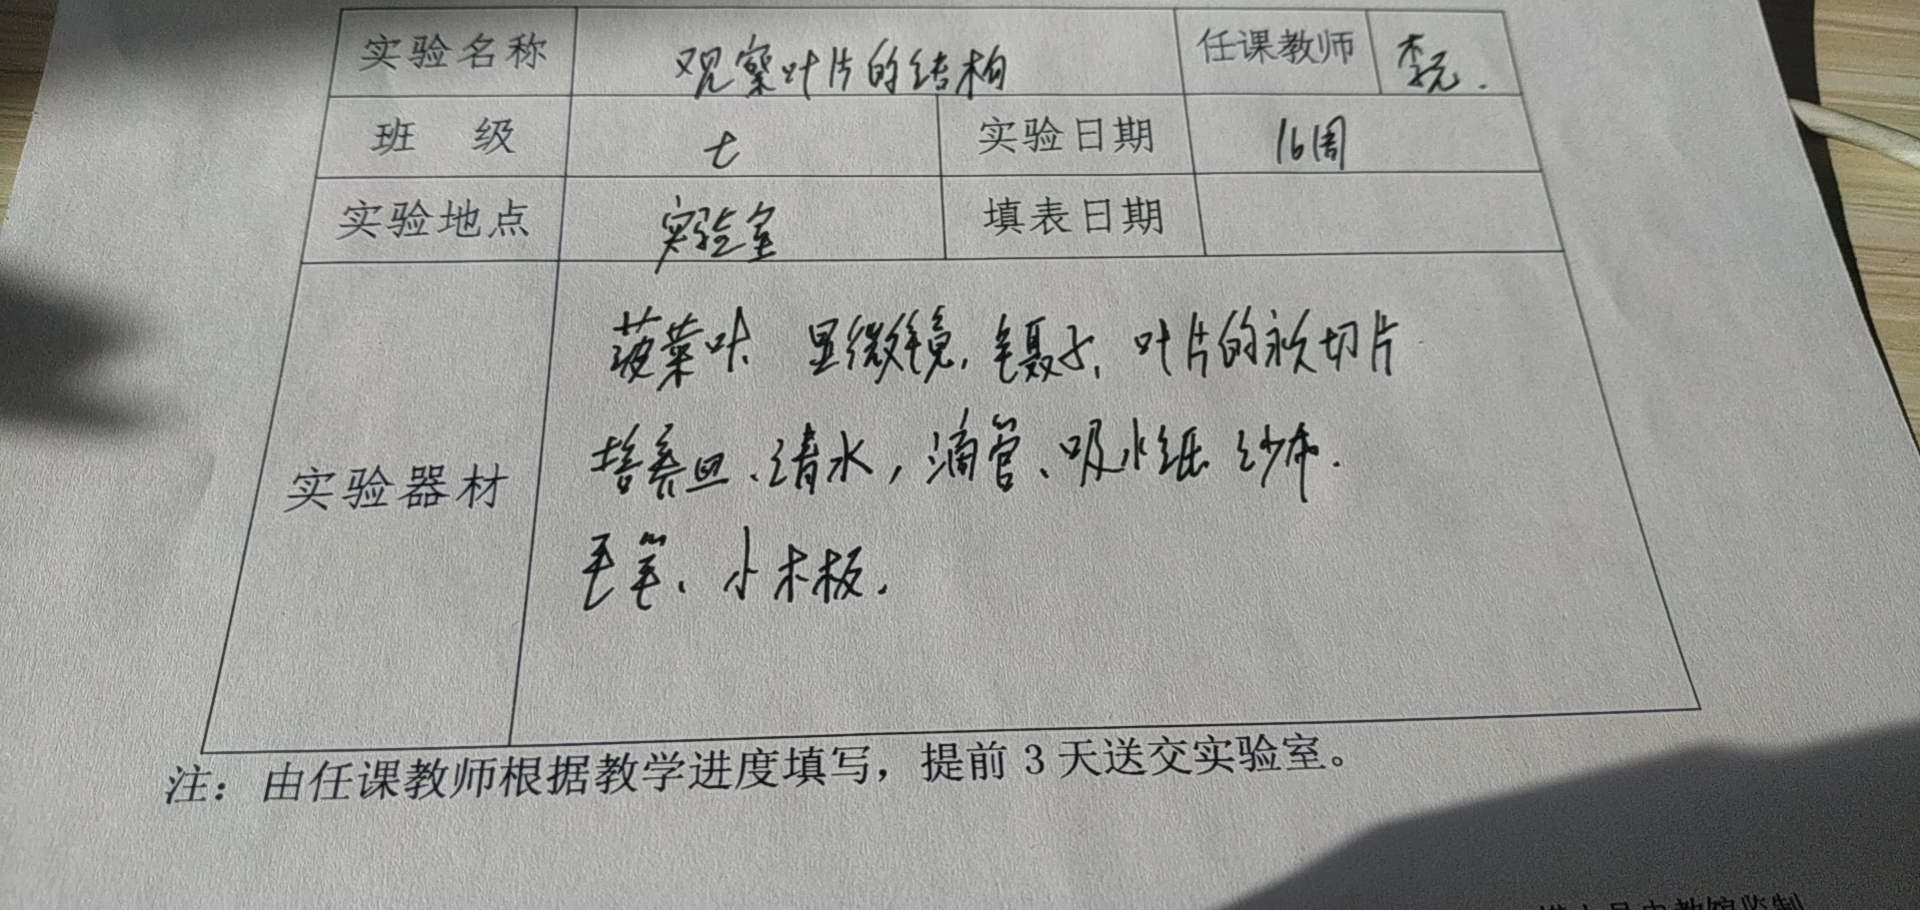 实验名称 观察叶片的结构 任课教师 李元.
班 级 七 实验日期 16周
实验地点 实验室 填表日期
实验器材
菠菜叶 显微镜, 镊子, 叶片的永久切片
培养皿、清水, 滴管、吸水纸 纱布.
毛笔、小木板.
注：由任课教师根据教学进度填写，提前 3 天送交实验室。